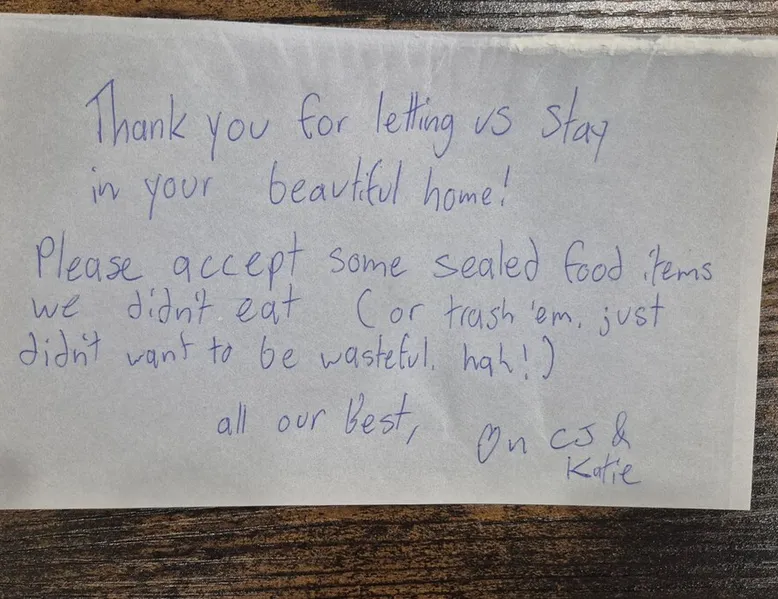 Thank you for letting us stay
in your beautiful home!
Please accept some sealed food items
we didn't eat (or trash 'em, just
didn't want to be wasteful. hah!)
all our Best,
CJ &
Katie